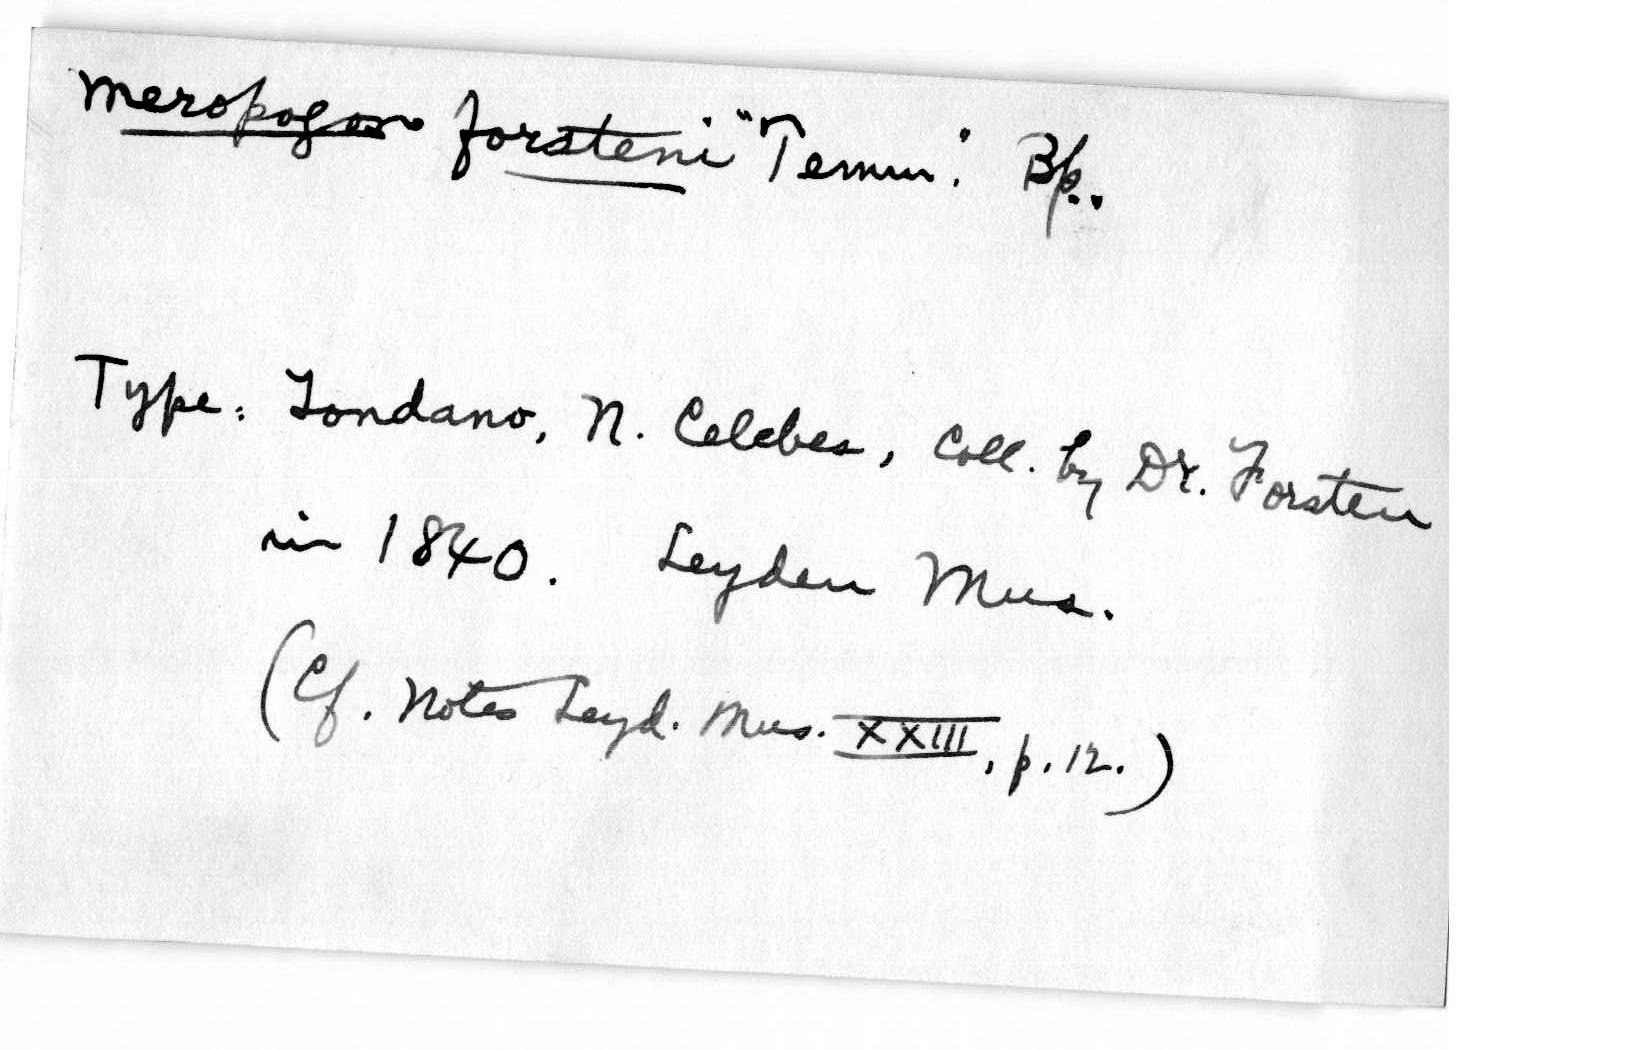 Meropogon forsteni "Temm". Bp.
Type: Tondano, N. Celebes, Coll. by Dr. Forsten
in 1840. Leyden Mus.
(Cf. Notes Leyd. Mus. XXIII, p. 12.)